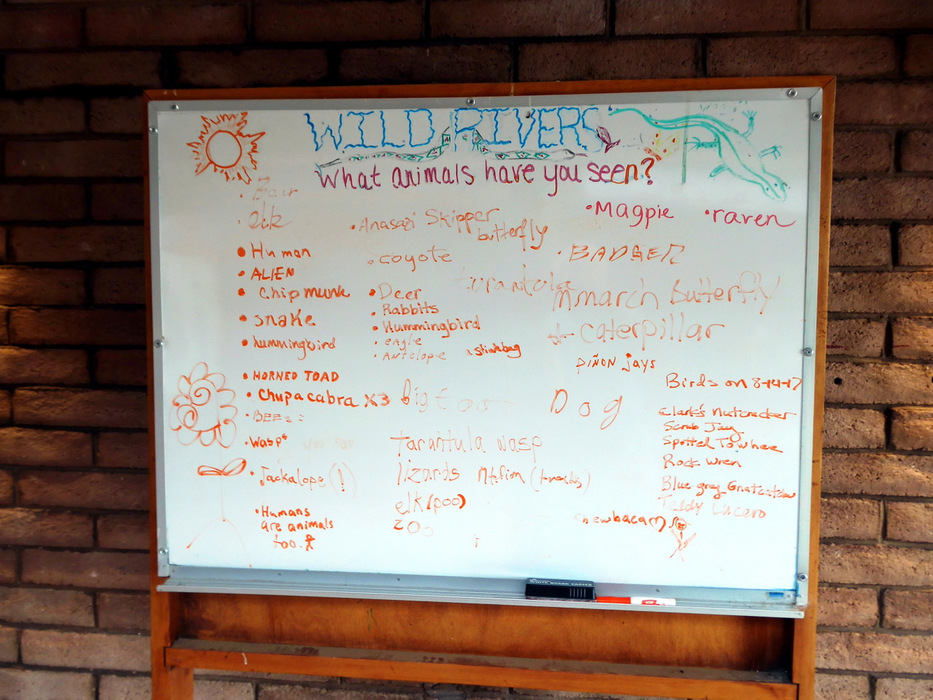 WILD RIVERS
What animals have you seen?
• Magpie • raven
• Elk
• Human
• ALIEN
• Chipmunk
• snake
• hummingbird
• HORNED TOAD
• Chupacabra x3
• BEES:
• Wasp
• Jackalope (!)
• Humans
are animals
too.
• Anasazi Skipper
butterfly
• coyote
• Deer
• Rabbits
• Hummingbird
• eagle
• Antelope • stinkbug
Bigfoot
tarantula wasp
lizards Mt. lion (tracks)
elk (poo)
• BADGER
tarantula
Mmarch Butterfly
caterpillar
PIÑON jays
Dog
chewbaca
Birds on 8-14-17
Clark's Nutcracker
Scrub Jay
Spotted Towhee
Rock Wren
Blue grey Gnatcatcher
Teddy Lucero